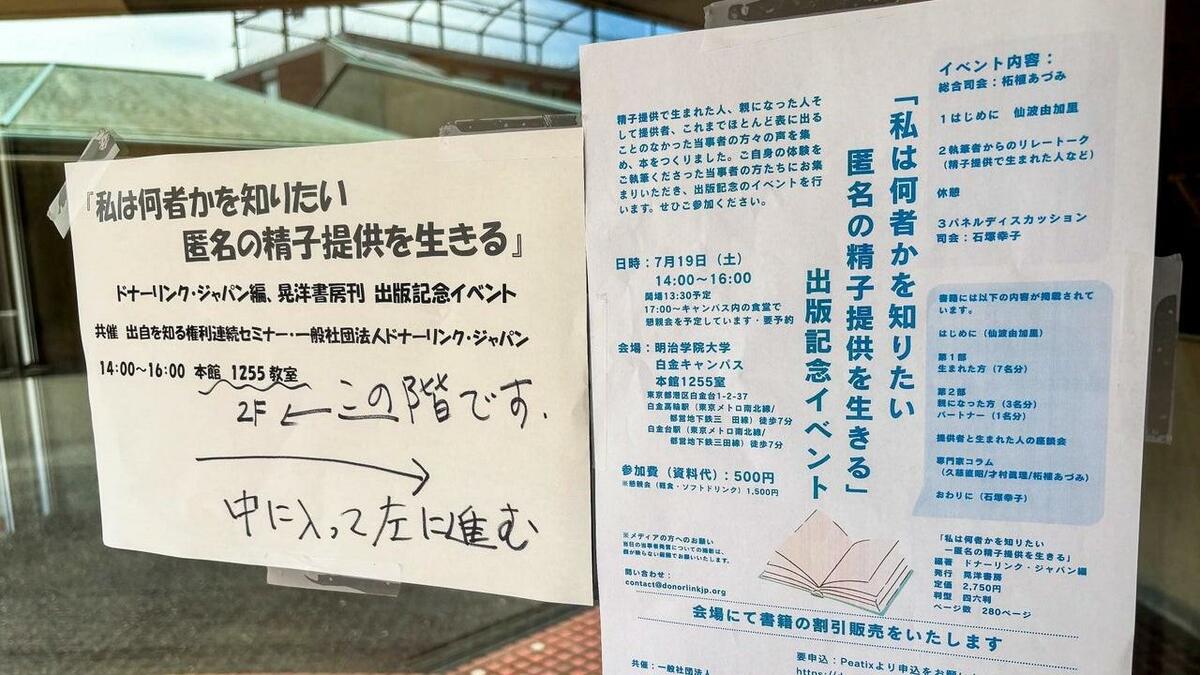 『私は何者かを知りたい
匿名の精子提供を生きる』
ドナーリンク・ジャパン編、晃洋書房刊 出版記念イベント
共催 出自を知る権利連続セミナー・一般社団法人ドナーリンク・ジャパン
14:00～16:00 本館 1255教室
2F ← この階です.
中に入って左に進む
精子提供で生まれた人、親になった人そ
して提供者、これまでほとんど表に出る
ことのなかった当事者の方々の声を集
め、本をつくりました。ご自身の体験を
ご執筆くださった当事者の方たちにお集
まりいただき、出版記念のイベントを行
います。ぜひご参加ください。
日時：7月19日（土）
14:00～16:00
開場13:30予定
17:00～キャンパス内の食堂で
懇親会を予定しています・要予約
会場：明治学院大学
白金キャンパス
本館1255室
東京都港区白金台1-2-37
白金高輪駅（東京メトロ南北線/
都営地下鉄三 田線）徒歩7分
白金台駅（東京メトロ南北線/
都営地下鉄三田線）徒歩7分
参加費（資料代）：500円
※懇親会（軽食・ソフトドリンク）1,500円
※メディアの方へのお願い
当日の当事者発言についての撮影は、
顔が映らない範囲でお願いいたします。
問い合わせ：
contact@donorlinkjp.org
「私は何者かを知りたい
匿名の精子提供を生きる」
出版記念イベント
イベント内容：
総合司会：柘植あづみ
1はじめに 仙波由加里
2執筆者からのリレートーク
（精子提供で生まれた人など）
休憩
3パネルディスカッション
司会：石塚幸子
書籍には以下の内容が掲載されて
います。
はじめに（仙波由加里）
第1部
生まれた方（7名分）
第2部
親になった方（3名分）
パートナー（1名分）
提供者と生まれた人の座談会
専門家コラム
（久慈直昭/才村眞理/柘植あづみ）
おわりに（石塚幸子）
「私は何者かを知りたい
―匿名の精子提供を生きる」
編著 ドナーリンク・ジャパン編
発行 晃洋書房
定価 2,750円
判型 四六判
ページ数 280ページ
会場にて書籍の割引販売をいたします
共催：一般社団法人
要申込：Peatixより申込をお願し